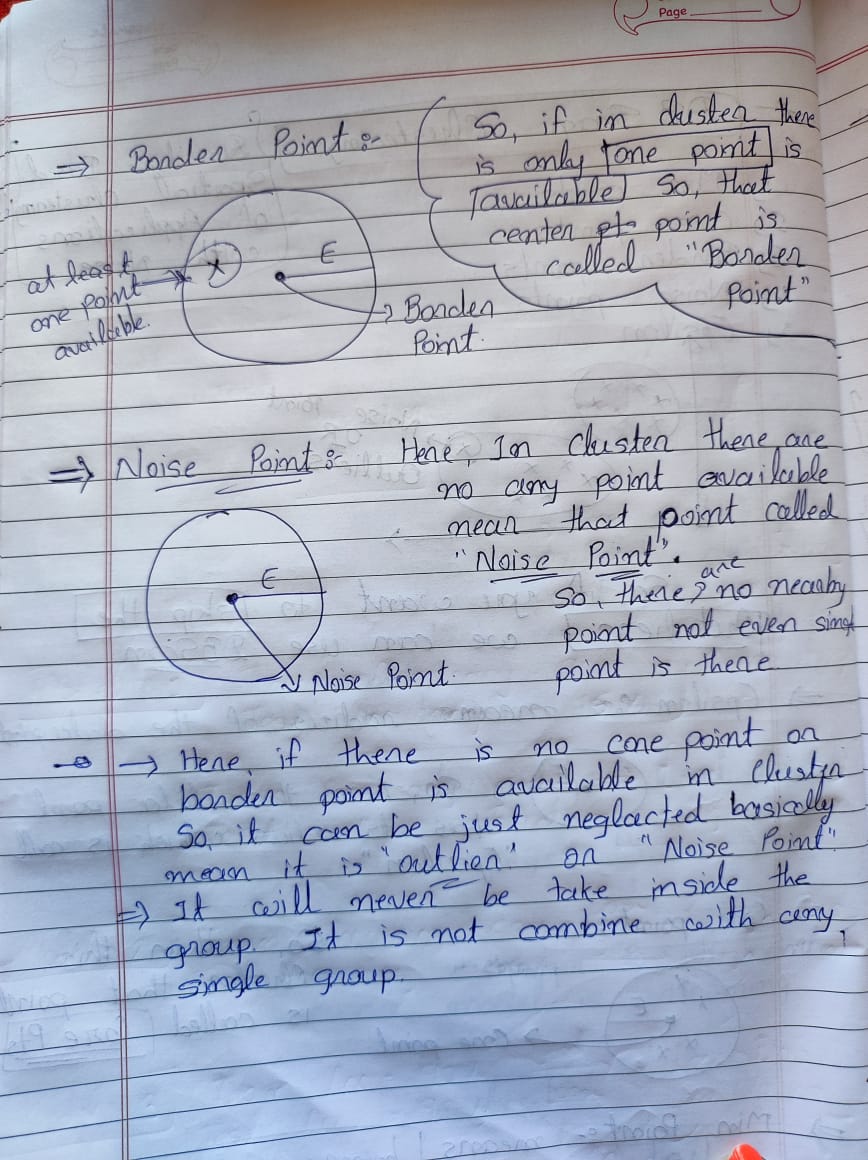 Page
⇒ Border Point :-
So, if in cluster there
is only one point is
available so, that
center pt point is
called "Border
Point"
at least
one point
available.
E
→ Border
Point.
⇒ Noise Point :- Here, In cluster there are
no any point available
mean that point called
"Noise Point".
So, there are no nearby
point not even singl
point is there
E
Noise Point.
→ Here, if there is no core point or
border point is available in cluster
So, it can be just neglacted basically
mean it is "outlier" or "Noise Point"
⇒ It will never be take inside the
group. It is not combine with any
single group.